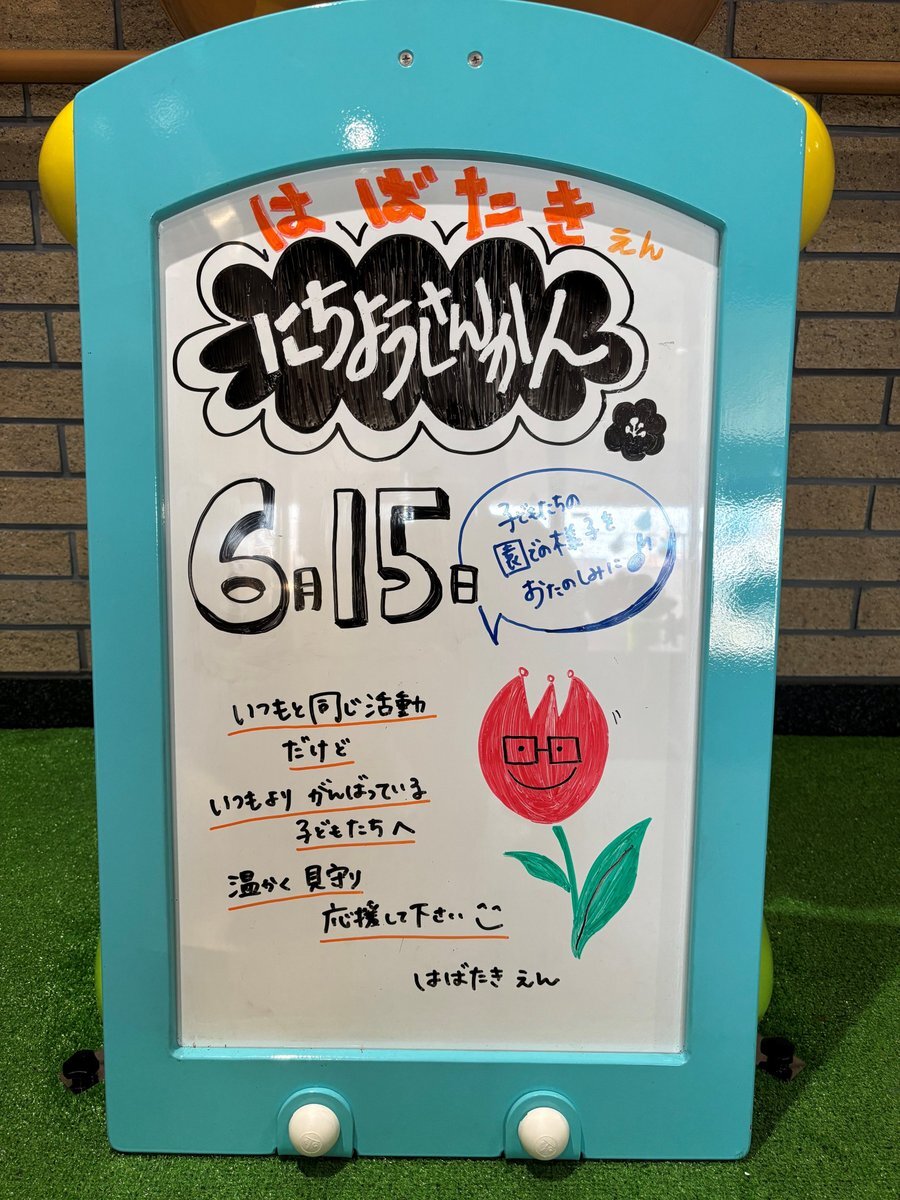 はばたきえん
にちようさんかん
6月15日
子どもたちの
園での様子を
おたのしみに♪
いつもと同じ活動
だけど
いつもより がんばっている
子どもたちへ
温かく見守り
応援して下さい
はばたきえん